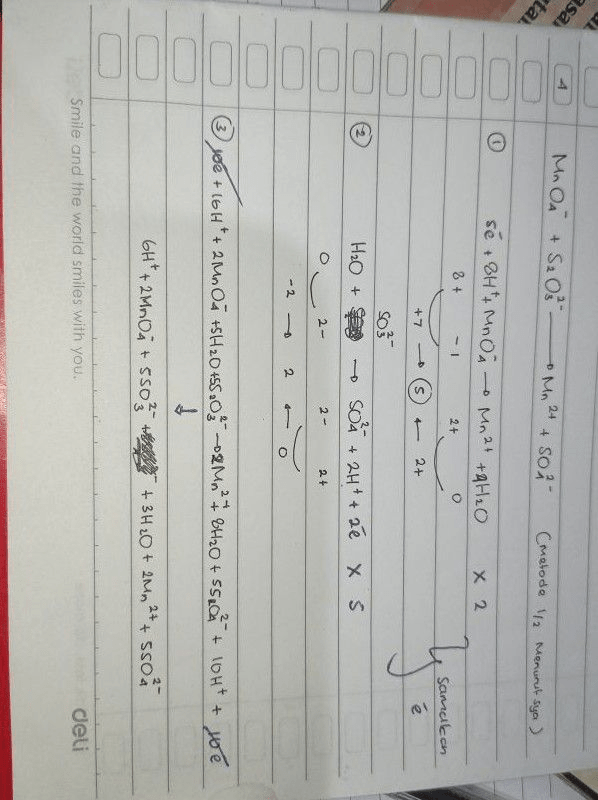 4 MnO4⁻ + S2O3²⁻ → Mn²⁺ + SO4²⁻ (metode 1/2 Menurut sya)
① 5e + 8H⁺ + MnO4⁻ → Mn²⁺ + 4H2O × 2
8+ -1 2+ 0
+7 → 5 ← 2+
samakan e
SO3²⁻
② H2O + → SO4²⁻ + 2H⁺ + 2e × 5
0 2- 2- 2+
-2 → 2 ← 0
③ 10e + 16H⁺ + 2MnO4⁻ + 5H2O + 5S2O3²⁻ → 2Mn²⁺ + 8H2O + 5SO4²⁻ + 10H⁺ + 10e
↓
6H⁺ + 2MnO4⁻ + 5SO3²⁻ + 3H2O + 2Mn²⁺ + 5SO4²⁻
Smile and the world smiles with you.
deli